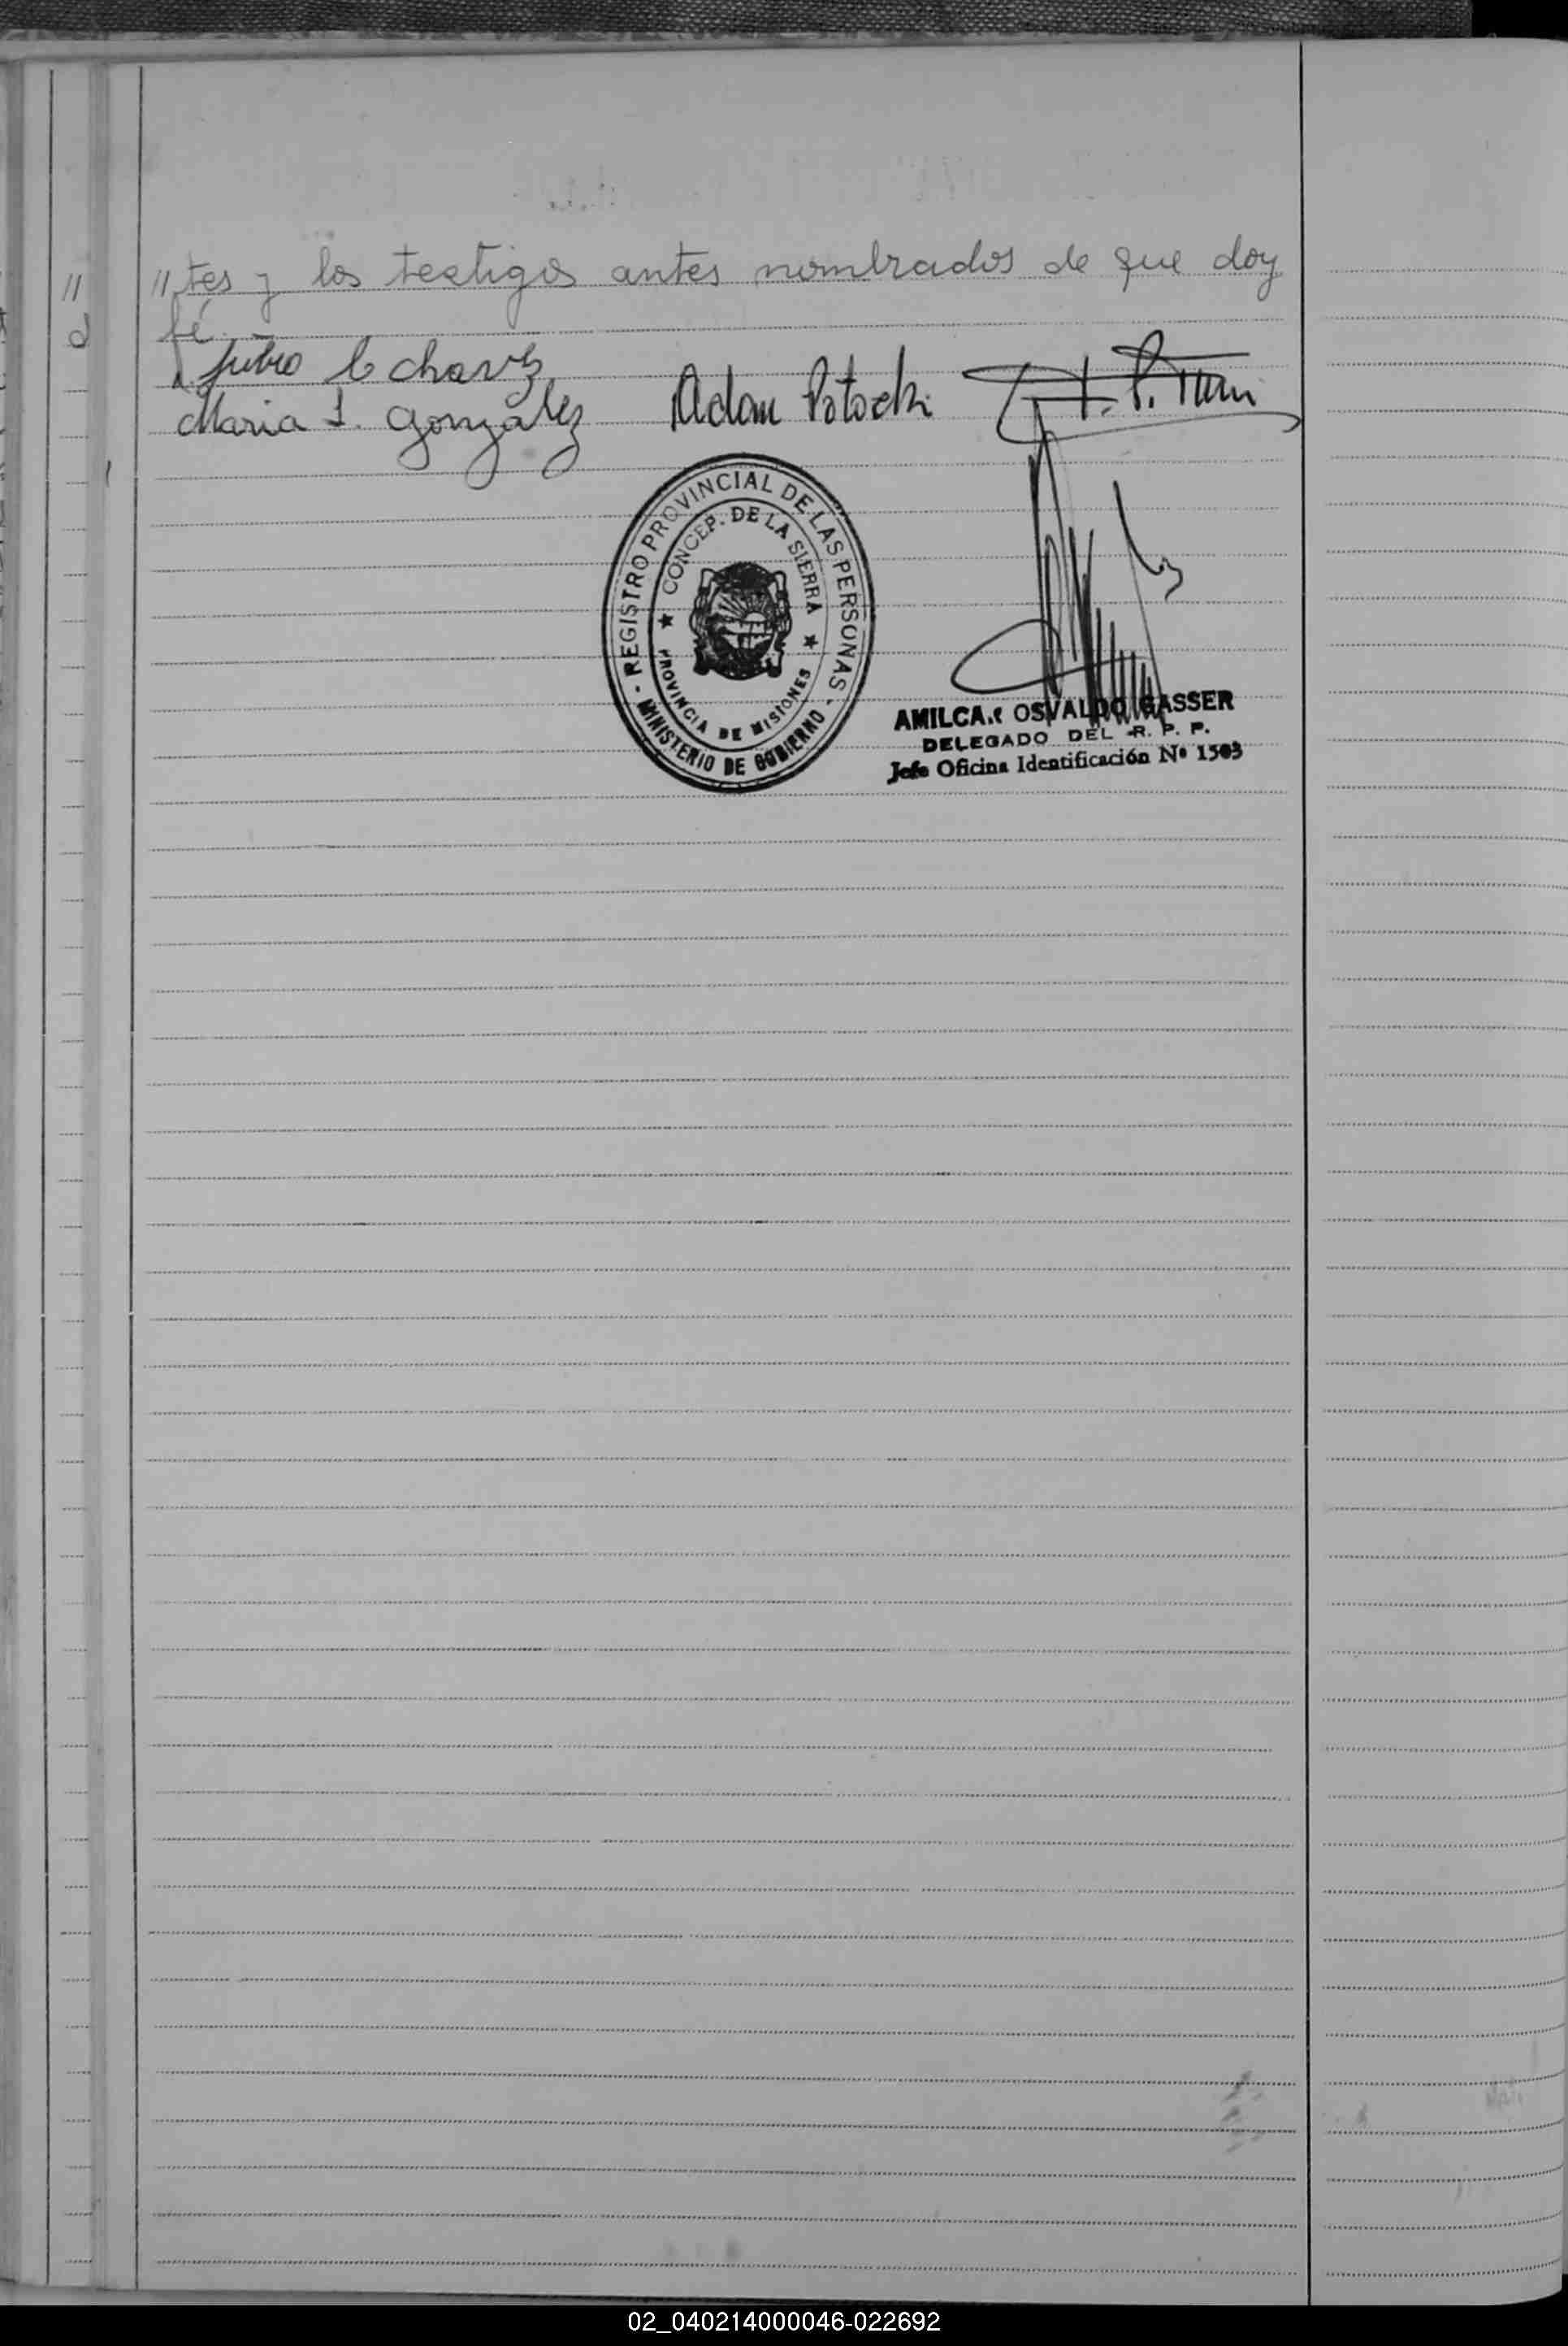 // tes y los testigos antes nombrados de que doy
fé.
Julio C Chavez
Maria I. Gonzalez Adam Potocki
- REGISTRO PROVINCIAL DE LAS PERSONAS -
MINISTERIO DE GOBIERNO
★ CONCEP. DE LA SIERRA ★
PROVINCIA DE MISIONES
AMILCAR OSVALDO GASSER
DELEGADO DEL R. P. P.
Jefe Oficina Identificación Nº 1503
02_040214000046-022692